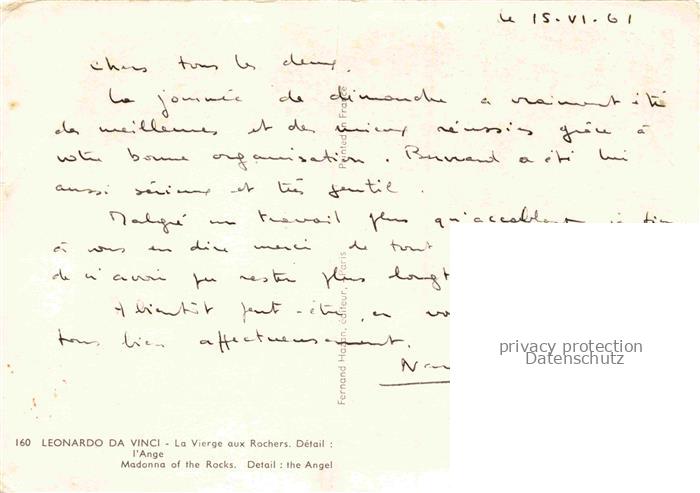 le 15.VI.61
chers tous les deux,
La journée de dimanche a vraiment été
des meilleures et des mieux réussies grâce à
votre bonne organisation. Bernard a été lui
aussi sérieux et très gentil.
Malgré un travail plus qu'accablant je tiens
à vous en dire merci de tout
de n'avoir pu rester plus longt
A bientôt peut-être, en vo
tous bien affectueusement.
privacy protection
Datenschutz
Printed in France
Fernand Hazan, éditeur, Paris
160 LEONARDO DA VINCI - La Vierge aux Rochers. Détail :
l'Ange
Madonna of the Rocks. Detail : the Angel